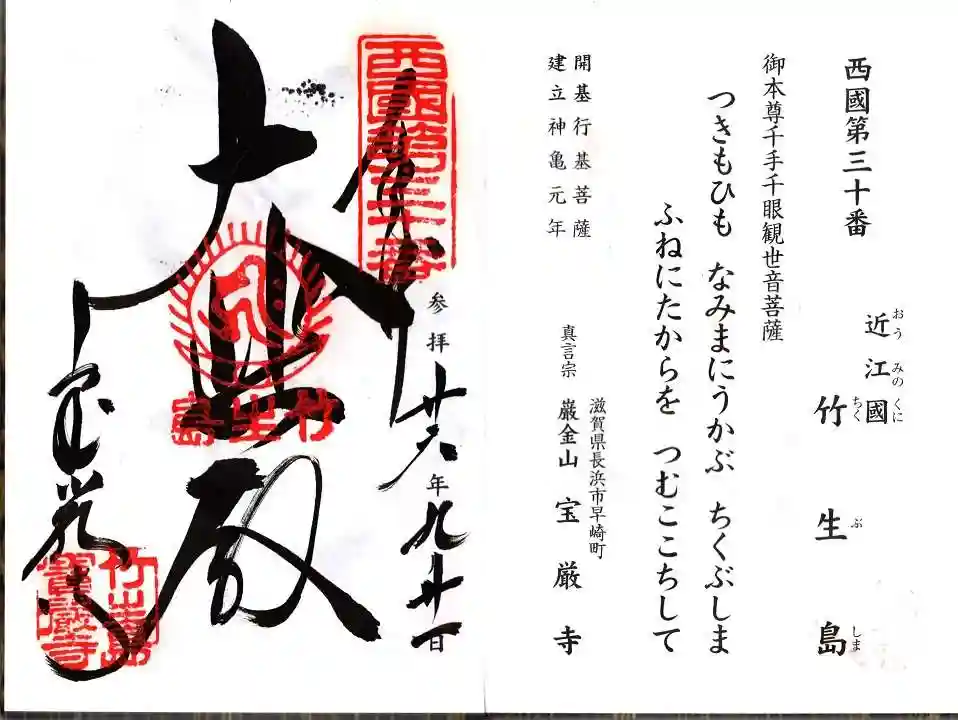 西國第三十番
近江國
おうみのくに
竹生島
ちくぶしま
御本尊千手千眼観世音菩薩
つきもひも なみまにうかぶ ちくぶしま
ふねにたからを つむここちして
開基行基菩薩
建立神亀元年
滋賀県長浜市早崎町
真言宗 巌金山 宝厳寺
西國第三十番
奉
参拝 廿六年九月廿一日
大悲殿
竹生島
宝厳寺
竹生島
寶嚴寺